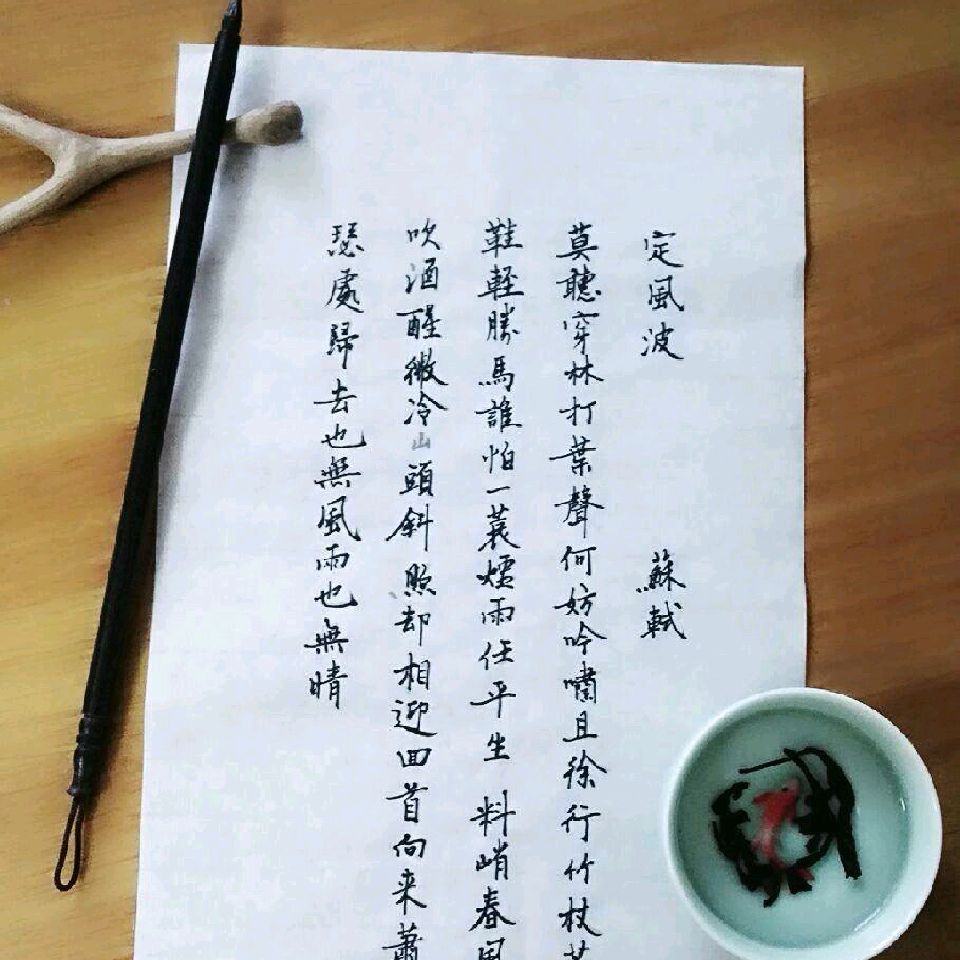 定風波 蘇軾
莫聽穿林打葉聲何妨吟嘯且徐行竹杖芒
鞋輕勝馬誰怕一蓑煙雨任平生 料峭春風
吹酒醒微冷山頭斜照却相迎回首向来蕭
瑟處歸去也無風雨也無晴